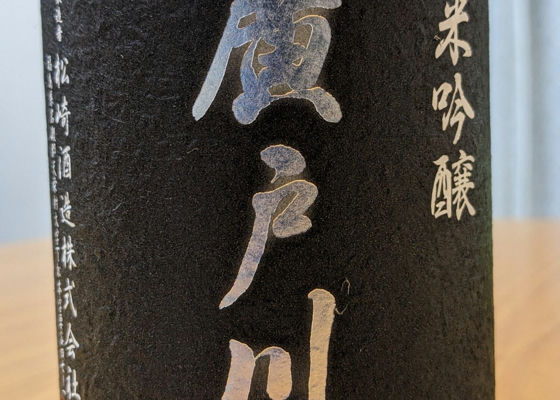 米吟醸
廣戸川
松崎酒造株式会社